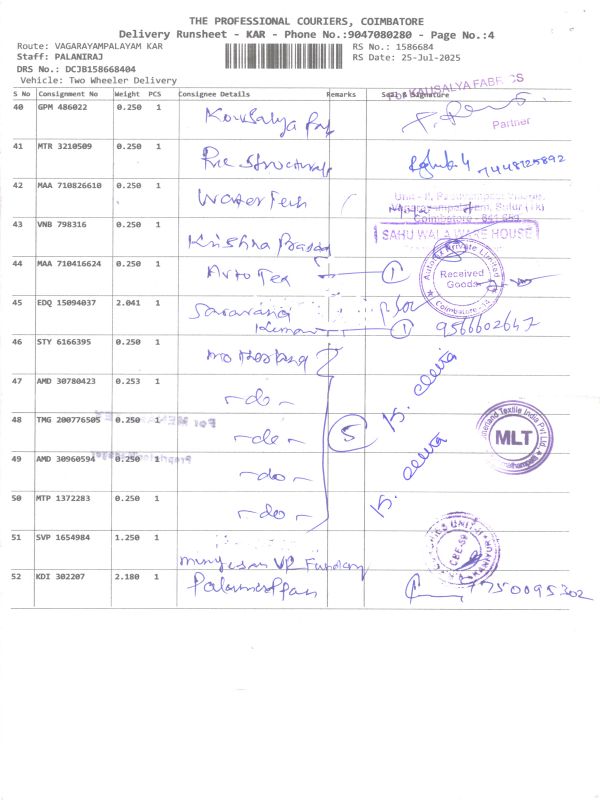 THE PROFESSIONAL COURIERS, COIMBATORE
Delivery Runsheet - KAR - Phone No.:9047080280 - Page No.:4
Route: VAGARAYAMPALAYAM KAR
RS No.: 1586684
Staff: PALANIRAJ
RS Date: 25-Jul-2025
DRS No.: DCJB158668404
Vehicle: Two Wheeler Delivery
S No Consignment No Weight PCS Consignee Details Remarks Seal & Signature
KAUSALYA FABRICS
40 GPM 486022 0.250 1
Kousalya
Partner
41 MTR 3210509 0.250 1
Structural 7448125892
42 MAA 710826610 0.250 1
Water Tech
Coimbatore
43 VNB 798316 0.250 1
SAHU WALA WARE HOUSE
Krishna Prasad
44 MAA 710416624 0.250 1
Auto Tex 1
Private Limited
Received
Goods
Coimbatore
45 EDQ 15094037 2.041 1
Saravana
Kumar 1 9566602647
46 STY 6166395 0.250 1
Motherland
47 AMD 30780423 0.253 1
-do-
48 TMG 200776505 0.250 1
-do- 5
Textile India Pvt Ltd.
MLT
49 AMD 30960594 0.250 1
-do-
50 MTP 1372283 0.250 1
-do-
51 SVP 1654984 1.250 1
Murugesan VP
CBE-59
52 KDI 302207 2.180 1
Palaniappan 7750095302